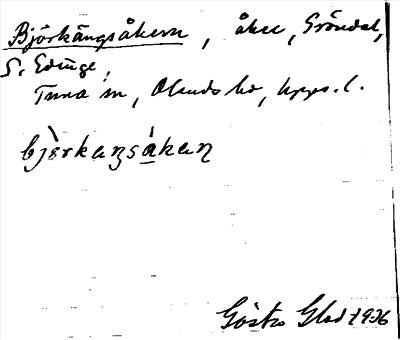 Björkängsåkern, åker, Gröndal,
S. Edinge,
Tuna sn, Olands hd, Upps. l.
bjòrkaŋsákaɳ
Gösta Glad 1936